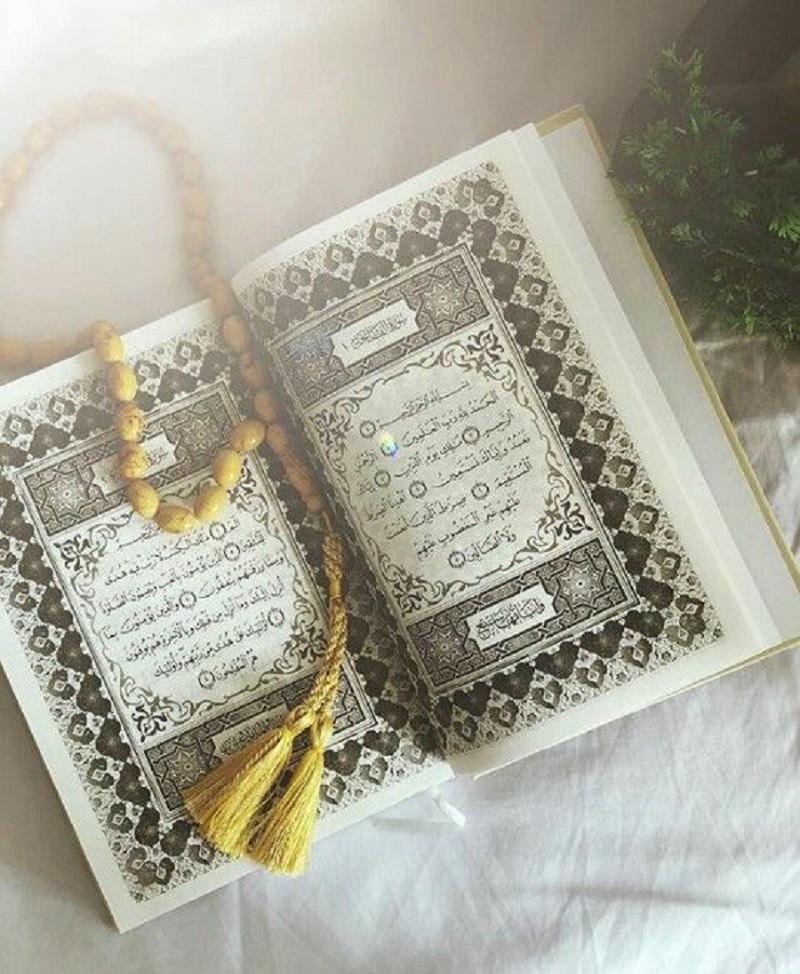 سُورَةُ الفَاتِحَةِ ١
بِسْمِ اللَّهِ الرَّحْمَٰنِ الرَّحِيمِ ١
الْحَمْدُ لِلَّهِ رَبِّ الْعَالَمِينَ ٢ الرَّحْمَٰنِ
الرَّحِيمِ ٣ مَالِكِ يَوْمِ الدِّينِ ٤ إِيَّاكَ
نَعْبُدُ وَإِيَّاكَ نَسْتَعِينُ ٥ اهْدِنَا الصِّرَاطَ
الْمُسْتَقِيمَ ٦ صِرَاطَ الَّذِينَ أَنْعَمْتَ
عَلَيْهِمْ غَيْرِ الْمَغْضُوبِ عَلَيْهِمْ
وَلَا الضَّالِّينَ ٧
سُورَةُ
الرَّحِيمِ
الم ١ ذَٰلِكَ الْكِتَابُ لَا رَيْبَ فِيهِ هُدًى
لِلْمُتَّقِينَ ٢ الَّذِينَ يُؤْمِنُونَ بِالْغَيْبِ وَيُقِيمُونَ الصَّلَاةَ
وَمِمَّا رَزَقْنَاهُمْ يُنْفِقُونَ ٣ وَالَّذِينَ يُؤْمِنُونَ بِمَا
أُنْزِلَ إِلَيْكَ وَمَا أُنْزِلَ مِنْ قَبْلِكَ وَبِالْآخِرَةِ هُمْ يُوقِنُونَ ٤
أُولَٰئِكَ عَلَىٰ هُدًى مِنْ رَبِّهِمْ وَأُولَٰئِكَ
هُمُ الْمُفْلِحُونَ ٥